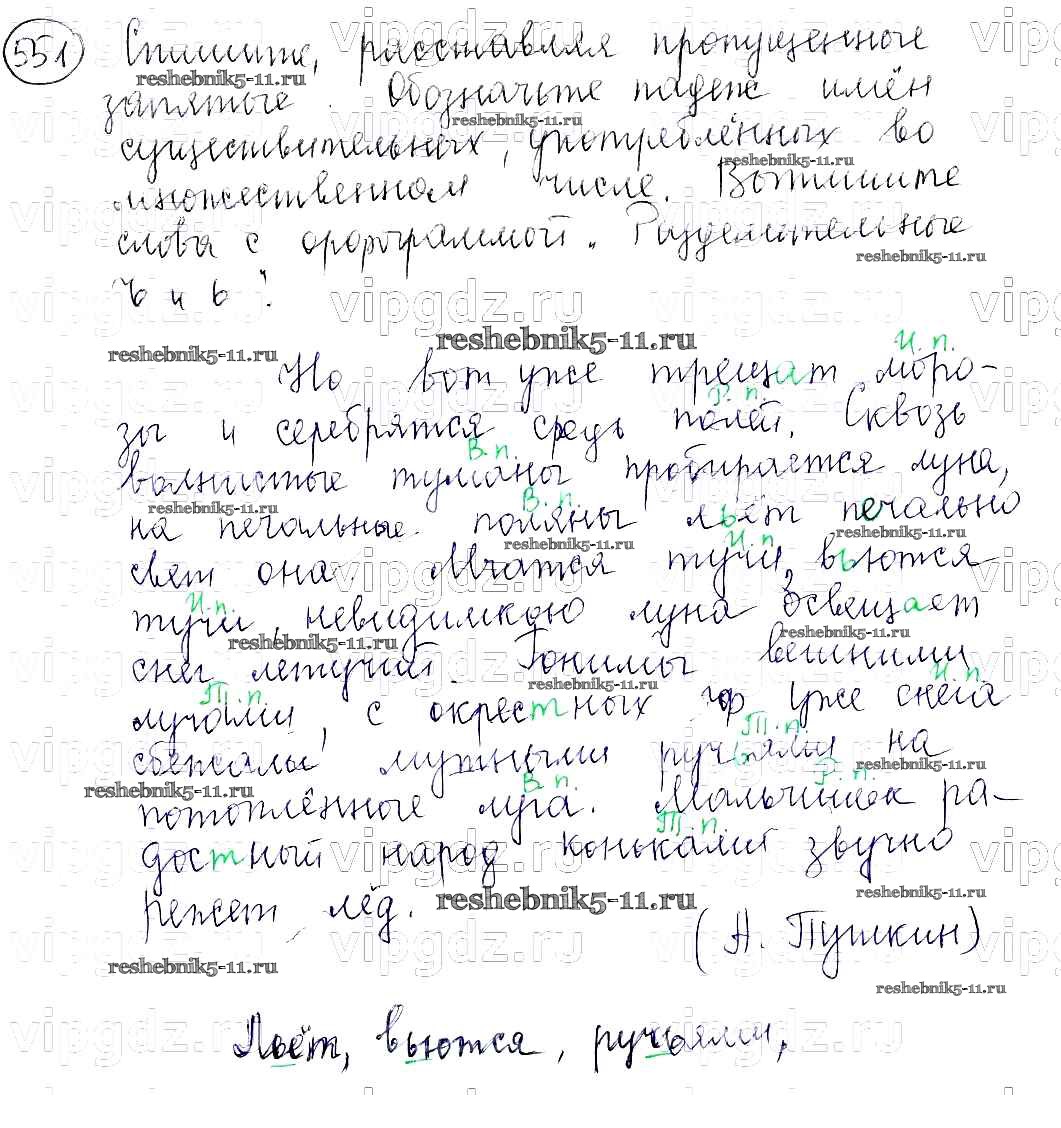 551 Спишите, расставляя пропущенные
запятые. Обозначьте падеж имён
существительных, употреблённых во
множественном числе. Выпишите
слова с орфограммой „Разделительные
ъ и ь".
И.п.
Но вот уже трещат моро-
Р.п.
зы и серебрятся средь полей. Сквозь
В.п.
волнистые туманы пробирается луна,
В.п.
на печальные поляны льёт печально
И.п.
свет она. Мчатся тучи, вьются
И.п.
тучи, невидимкою луна освещает
снег летучий. Гонимы вешними
Т.п. И.п.
лучами, с окрестных гор уже снега
Т.п.
сбежали мутными ручьями на
В.п. Р.п.
потоплённые луга. Мальчишек ра-
Т.п.
достный народ коньками звучно
режет лёд.
(А. Пушкин)
Льёт, вьются, ручьями,
vipgdz.ru
reshebnik5-11.ru